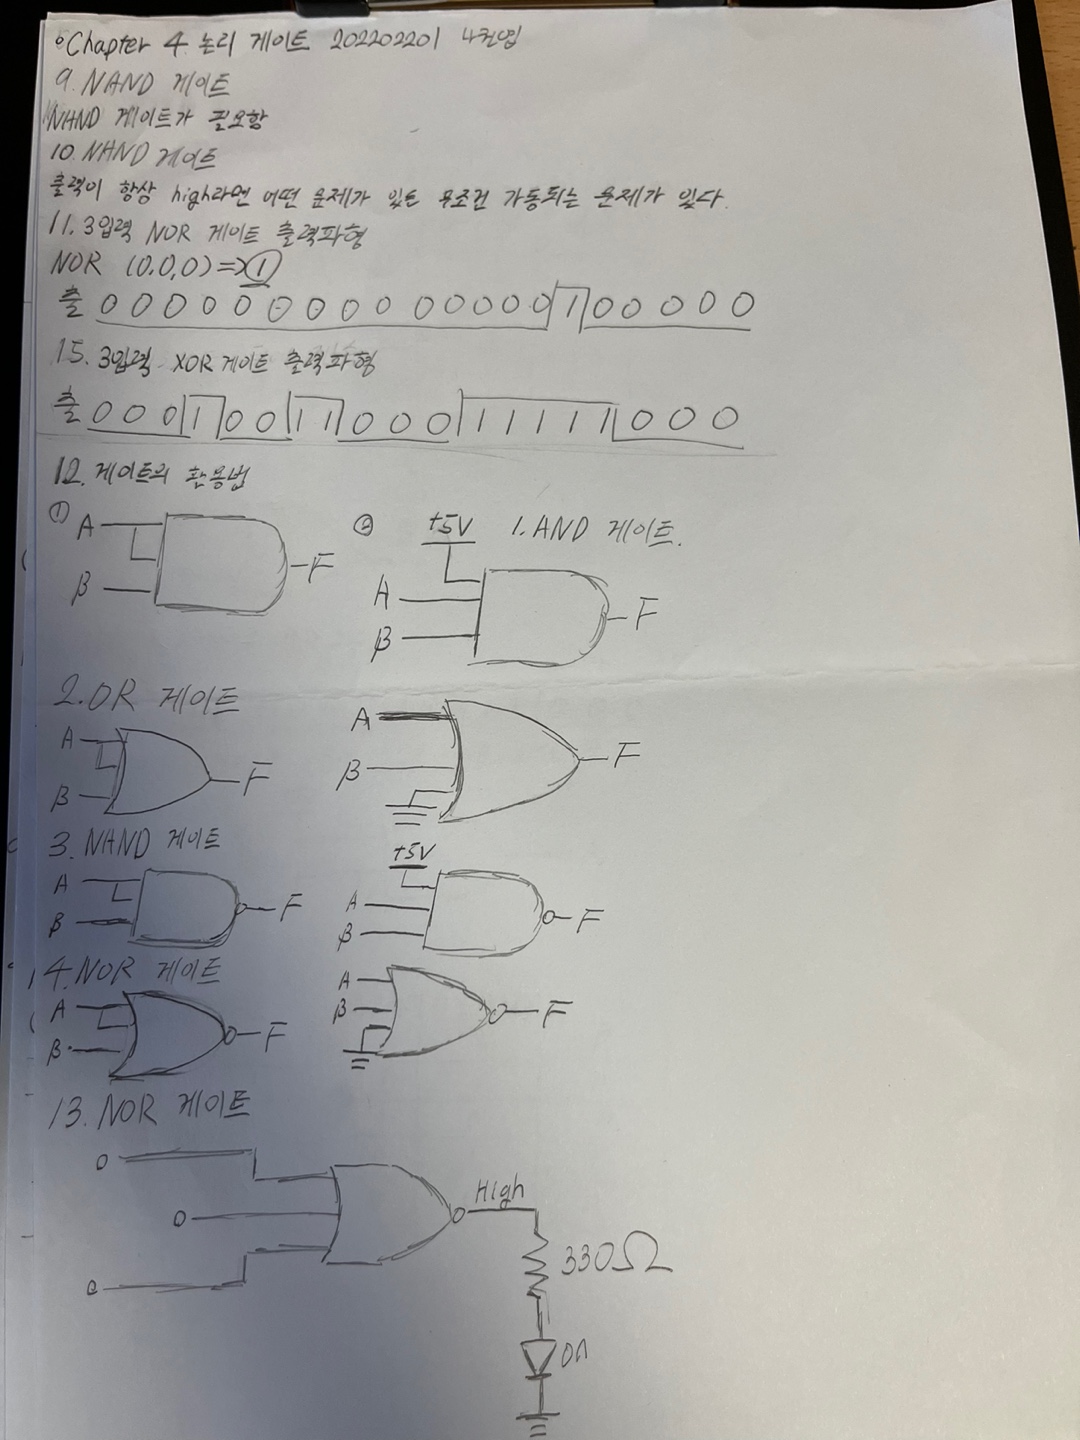 Chapter 4 논리 게이트 202202201
9. NAND 게이트
NAND 게이트가 필요함
10. NAND 게이트
출력이 항상 high라면 어떤 문제가 있든 무조건 가동되는 문제가 있다.
11. 3입력 NOR 게이트 출력파형
NOR (0,0,0) => 1
출 0 0 0 0 0 0 0 0 0 0 0 0 0 1 0 0 0 0 0
15. 3입력 XOR 게이트 출력파형
출 0 0 0 1 0 0 1 1 0 0 0 1 1 1 1 1 0 0 0
12. 게이트의 활용법
① A B F
② +5V 1. AND 게이트.
A B F
2. OR 게이트
A B F
A B F
3. NAND 게이트
A B F
+5V
A B F
4. NOR 게이트
A B F
A B F
13. NOR 게이트
0
0
0
High
330Ω
on